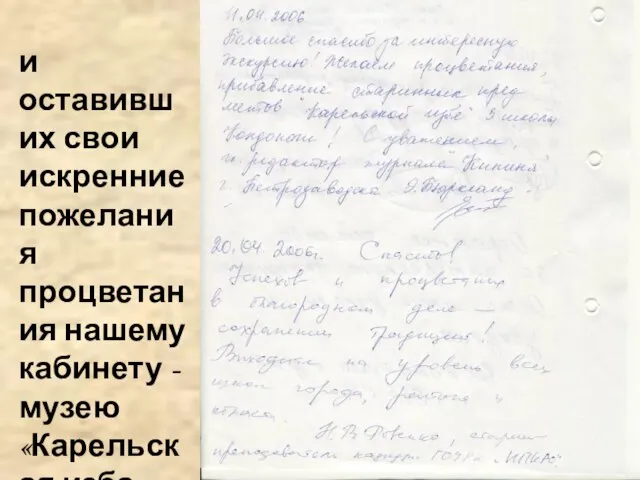 и
оставивш
их свои
искренние
пожелани
я
процветан
ия нашему
кабинету -
музею
«Карельск
ая изба
11.04.2006
Большое спасибо за интересную
экскурсию! Желаем процветания,
прибавление старинных пред-
метов "Карельской избе" 3 школы
Кондопоги! С уважением,
гл. редактор журнала "Кипиня"
г. Петрозаводска
20.04.2006г. Спасибо
Успехов и процветания
в благородном деле —
сохранении традиций!
Выходите на уровень всех
школ города, района и
старший
преподаватель